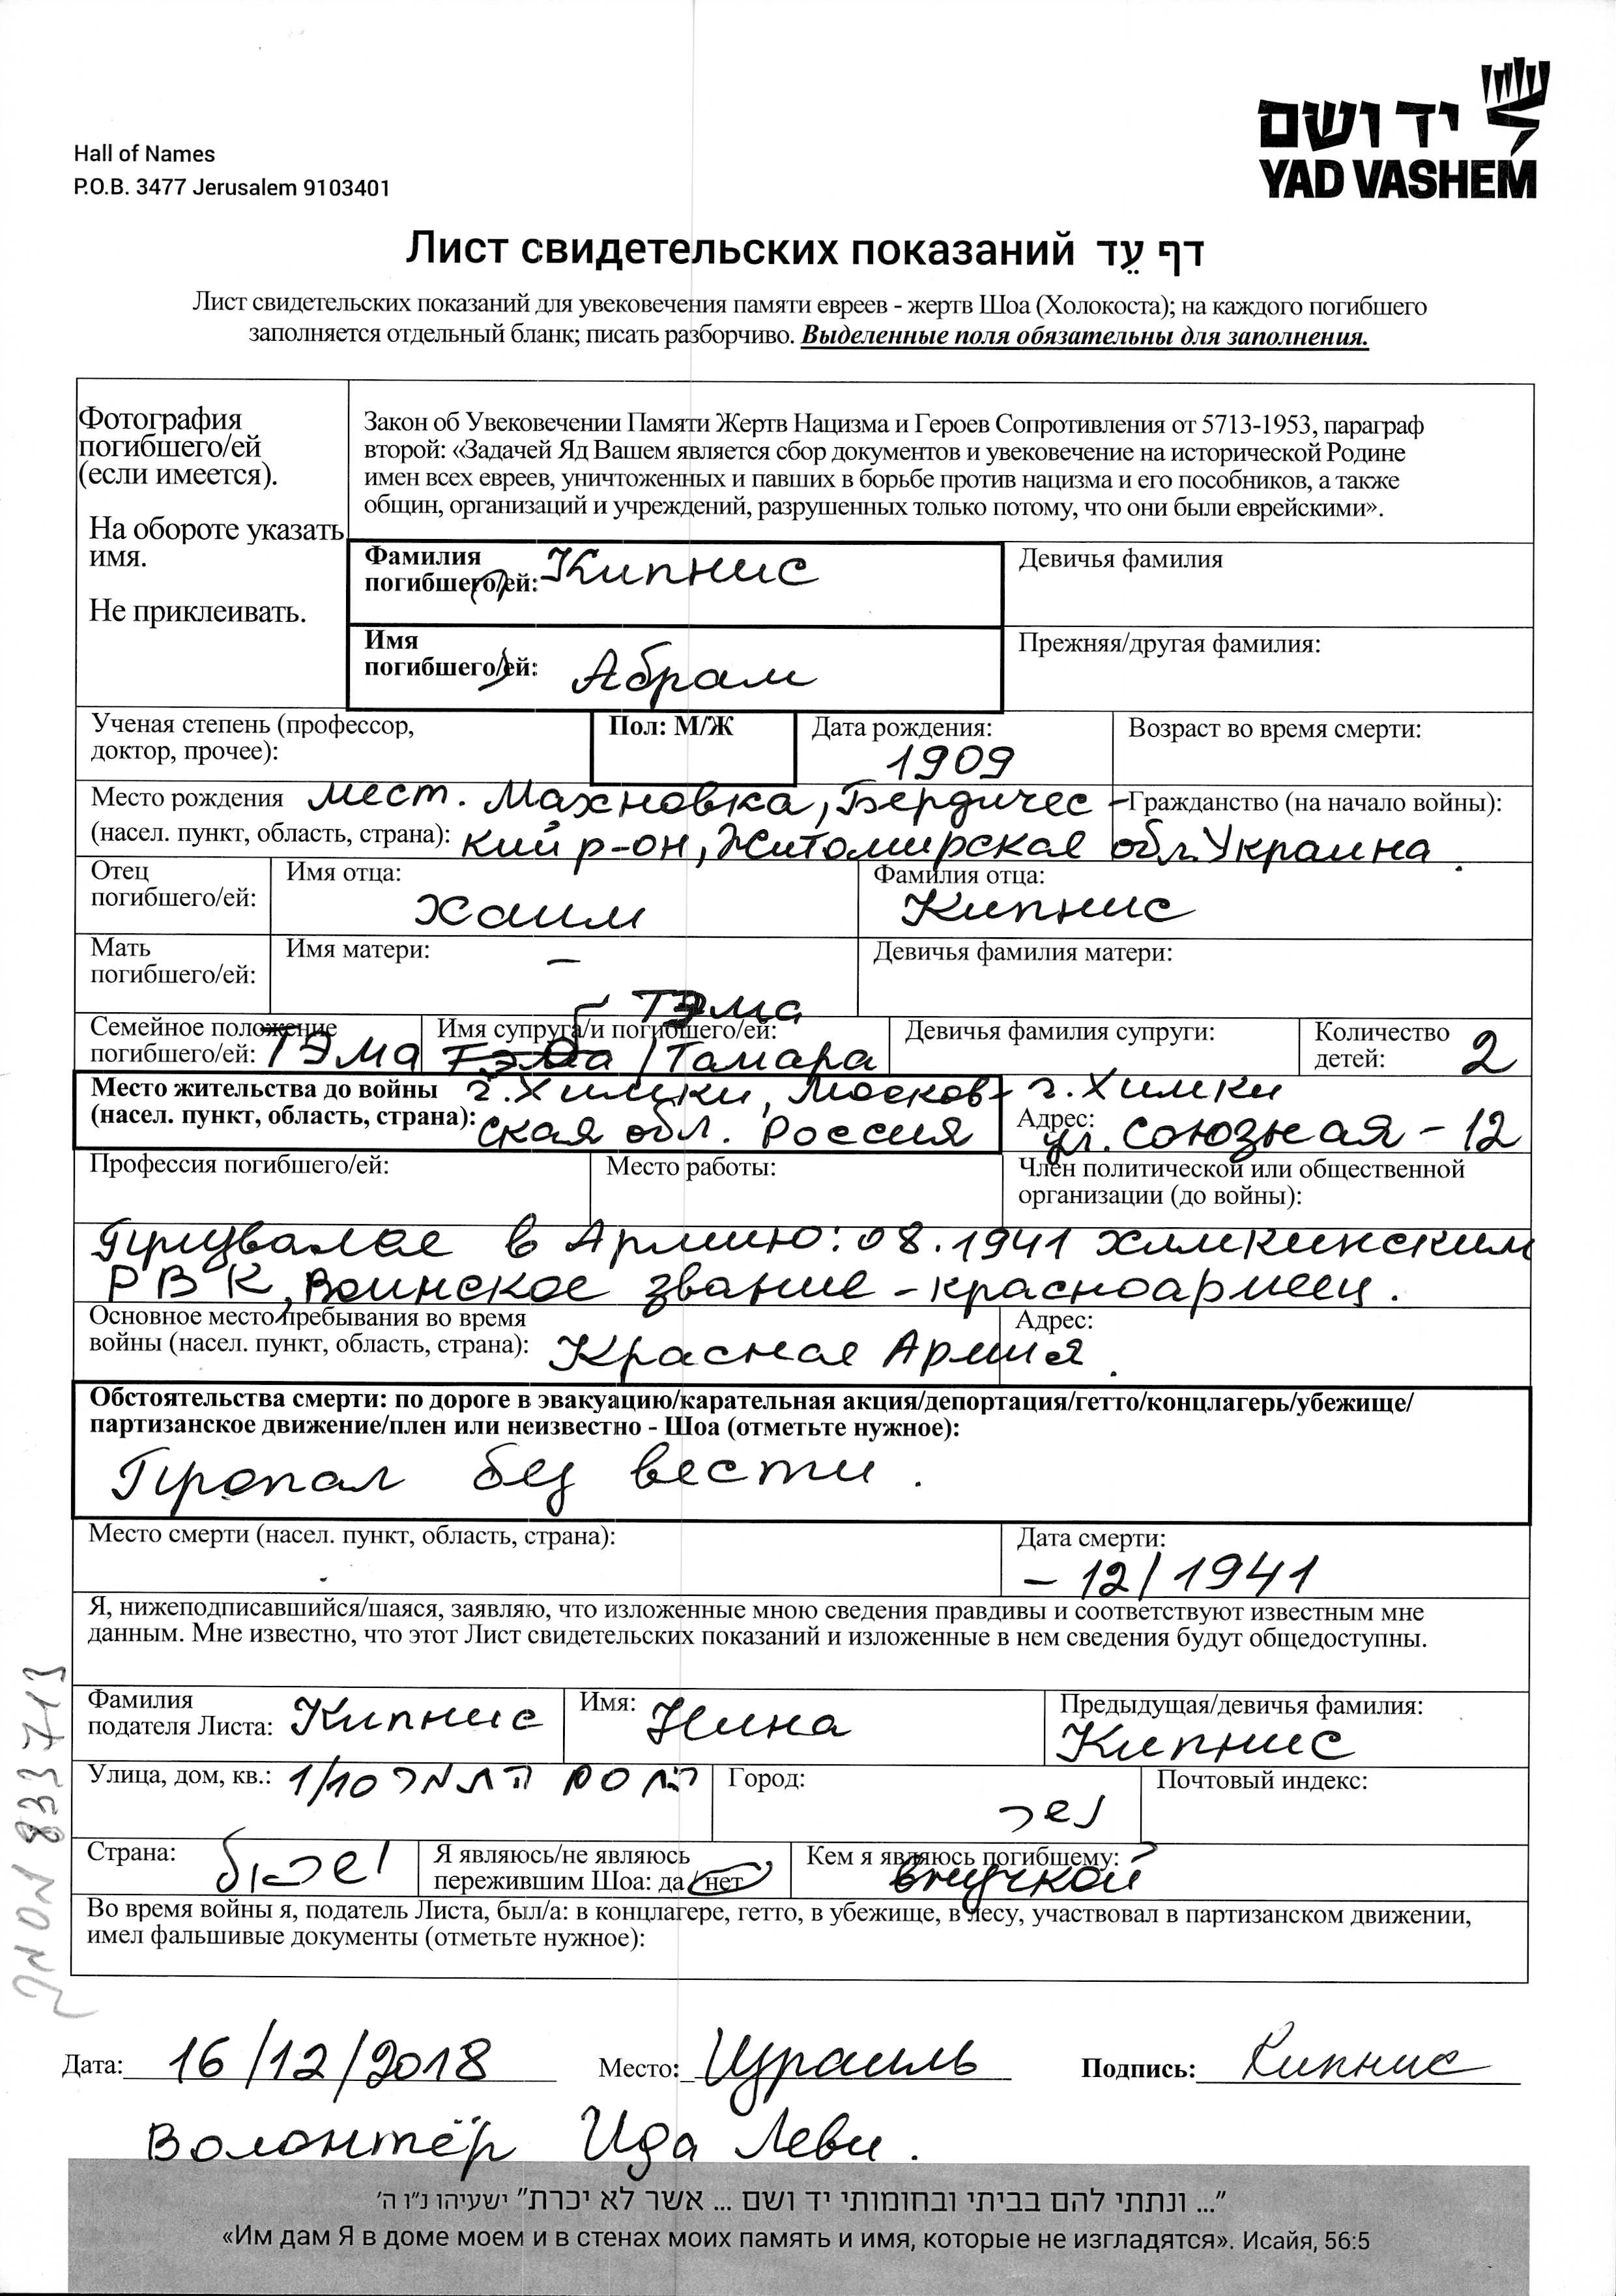 יד ושם
YAD VASHEM
Hall of Names
P.O.B. 3477 Jerusalem 9103401
Лист свидетельских показаний דף עֵד
Лист свидетельских показаний для увековечения памяти евреев - жертв Шоа (Холокоста); на каждого погибшего
заполняется отдельный бланк; писать разборчиво. Выделенные поля обязательны для заполнения.
Фотография
погибшего/ей
(если имеется).
На обороте указать
имя.
Не приклеивать.
Закон об Увековечении Памяти Жертв Нацизма и Героев Сопротивления от 5713-1953, параграф
второй: «Задачей Яд Вашем является сбор документов и увековечение на исторической Родине
имен всех евреев, уничтоженных и павших в борьбе против нацизма и его пособников, а также
общин, организаций и учреждений, разрушенных только потому, что они были еврейскими».
Фамилия
погибшего/ей: Кипнис
Девичья фамилия
Имя
погибшего/ей: Абрам
Прежняя/другая фамилия:
Ученая степень (профессор,
доктор, прочее):
Пол: М/Ж
Дата рождения:
1909
Возраст во время смерти:
Место рождения мест. Махновка, Бердичес-
(насел. пункт, область, страна): кий р-он, Житомирская обл. Украина.
Гражданство (на начало войны):
Отец
погибшего/ей:
Имя отца:
Хаим
Фамилия отца:
Кипнис
Мать
погибшего/ей:
Имя матери: –
Девичья фамилия матери:
Семейное положение
погибшего/ей: Тэма
Тэма
Имя супруга/и погибшего/ей:
/Тамара
Девичья фамилия супруги:
Количество
детей: 2
Место жительства до войны г. Химки, Москов-
(насел. пункт, область, страна): ская обл. Россия
г. Химки
Адрес:
ул. Союзная - 12
Профессия погибшего/ей:
Место работы:
Член политической или общественной
организации (до войны):
Призвался в Армию: 08.1941 Химкинским
РВК, Воинское звание - красноармеец.
Основное место пребывания во время
войны (насел. пункт, область, страна): Красная Армия.
Адрес:
Обстоятельства смерти: по дороге в эвакуацию/карательная акция/депортация/гетто/концлагерь/убежище/
партизанское движение/плен или неизвестно - Шоа (отметьте нужное):
Пропал без вести.
Место смерти (насел. пункт, область, страна):
Дата смерти:
– 12/1941
Я, нижеподписавшийся/шаяся, заявляю, что изложенные мною сведения правдивы и соответствуют известным мне
данным. Мне известно, что этот Лист свидетельских показаний и изложенные в нем сведения будут общедоступны.
Фамилия
подателя Листа: Кипнис
Имя: Нина
Предыдущая/девичья фамилия:
Кипнис
Улица, дом, кв.: התמר 1/10
Город:
נשר
Почтовый индекс:
Страна: ישראל
Я являюсь/не являюсь
пережившим Шоа: да/нет
Кем я являюсь погибшему:
внучкой
Во время войны я, податель Листа, был/а: в концлагере, гетто, в убежище, в лесу, участвовал в партизанском движении,
имел фальшивые документы (отметьте нужное):
833713
Дата: 16/12/2018 Место: Израиль Подпись: Кипнис
Волонтёр Ида Леви.
"... ונתתי להם בביתי ובחומותי יד ושם ... אשר לא יכרת" ישעיהו נ"ו ה'
«Им дам Я в доме моем и в стенах моих память и имя, которые не изгладятся». Исайя, 56:5